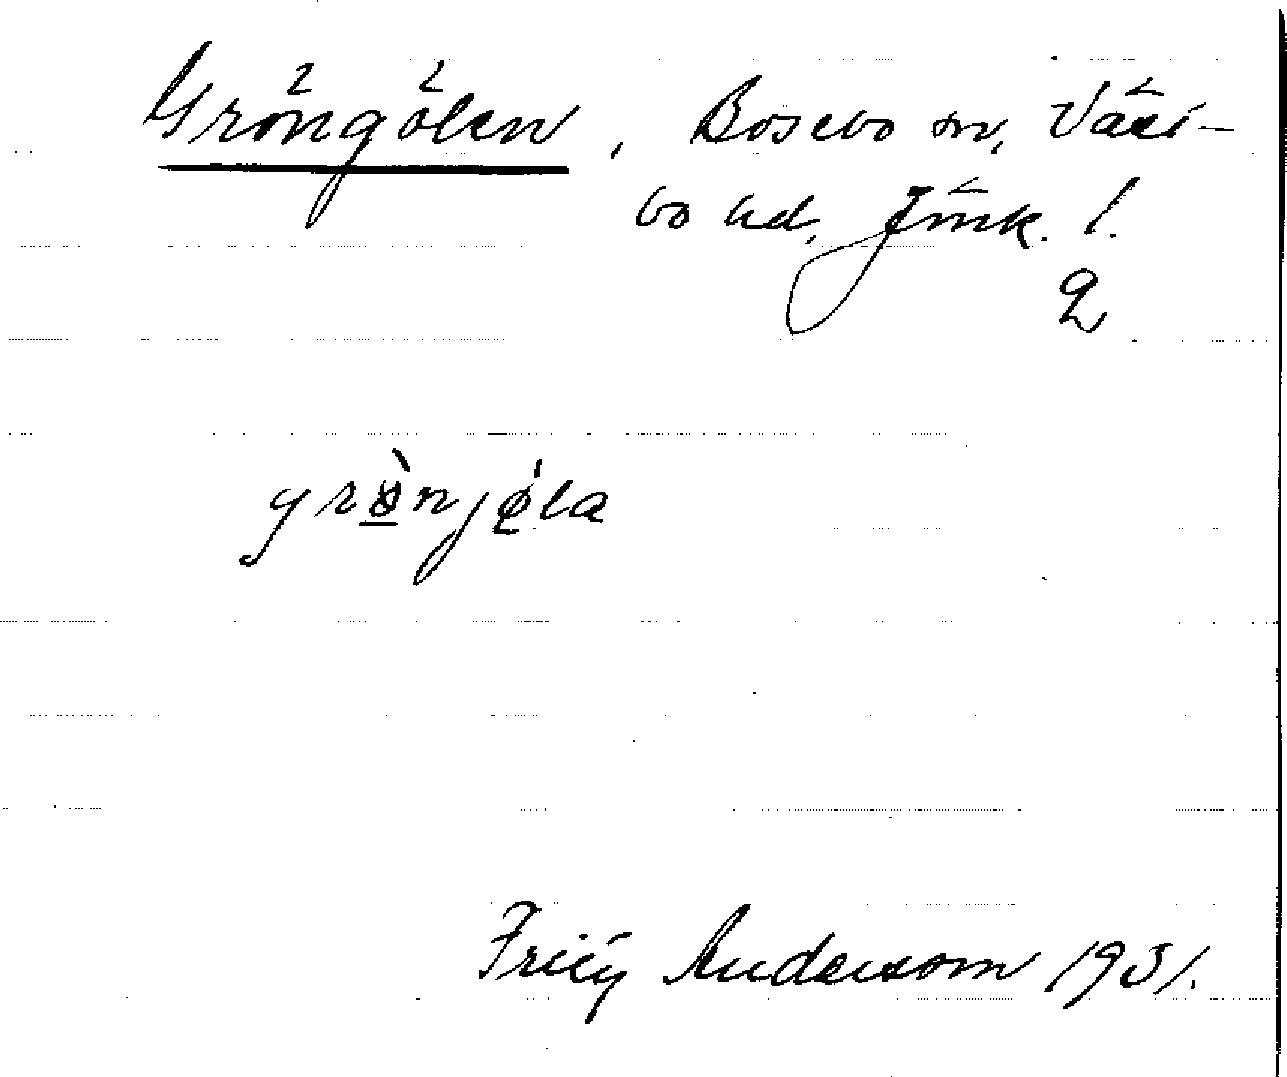 Gröngölen, Bosebo sn, Västbo hd, Jönk. l.
2
grönjöla
Anderson 1931.